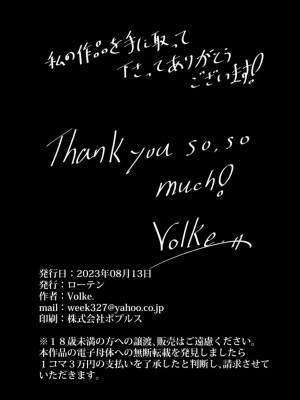 私の作品を手に取って
下さってありがとう
ございます!
Thank you so, so
much!
Volke.
発行日：2023年08月13日
発行：ローテン
作者：Volke.
mail：week327@yahoo.co.jp
印刷：株式会社ポプルス
※１８歳未満の方への譲渡、販売はご遠慮ください。
本作品の電子母体への無断転載を発見しましたら
１コマ３万円の支払いを了承したと判断し、請求させて
いただきます。